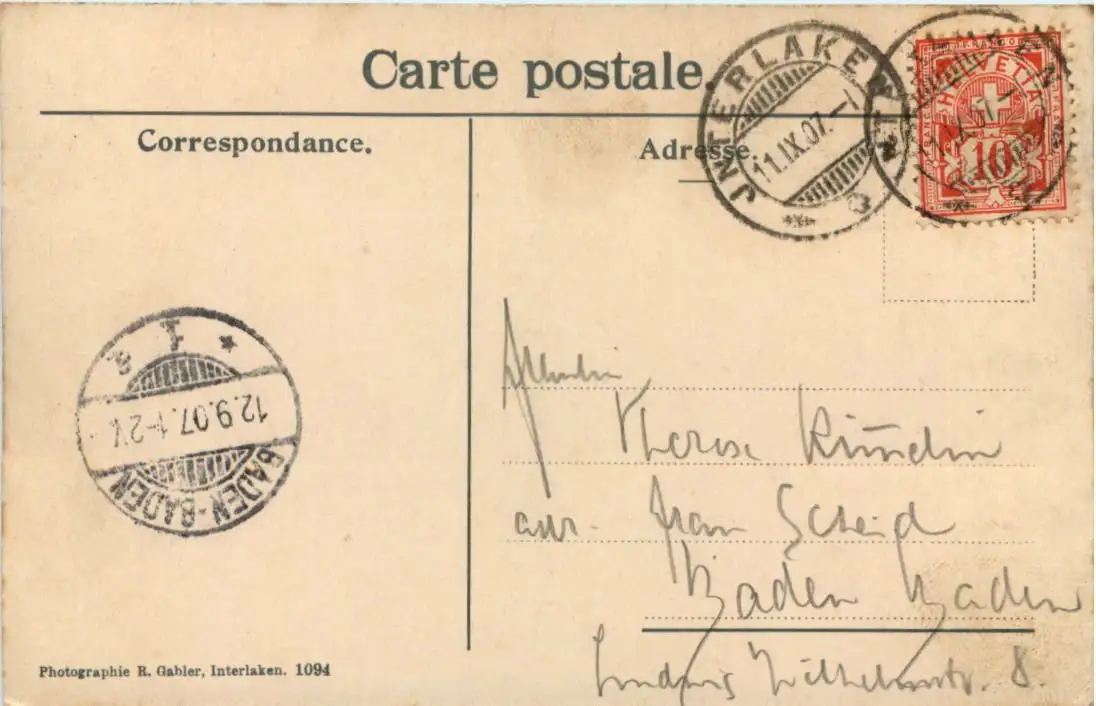 Carte postale
Correspondance.
Adresse.
JNTERLAKEN
11.IX.07.-
HELVETIA
10
1
12.9.07.1-2V.
BADEN-BADEN
Therese
Frau Scheid
Baden Baden
Ludwig Wilhelmstr. 8.
Photographie R. Gabler, Interlaken. 1094